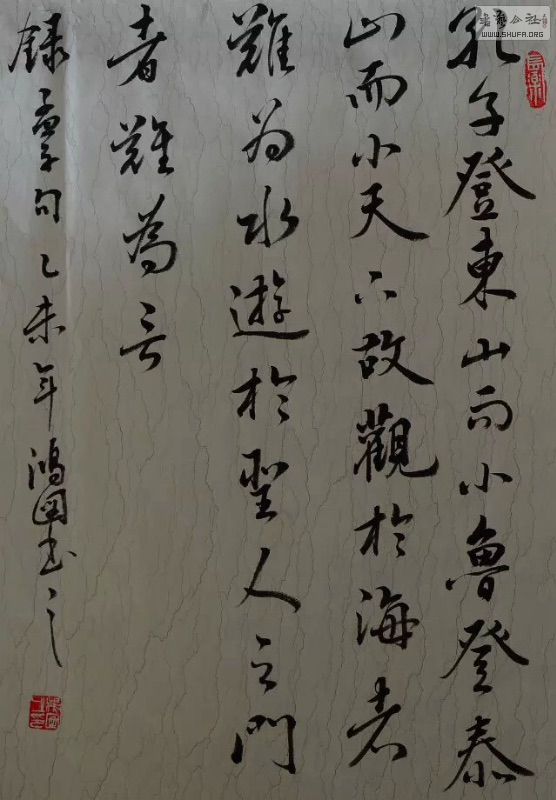 孔子登東山而小魯登泰
山而小天下故觀於海者
難为水遊於聖人之門
者難為言
錄孟子句乙未年鴻圖书之
書法公社
WWW.SHUFA.ORG